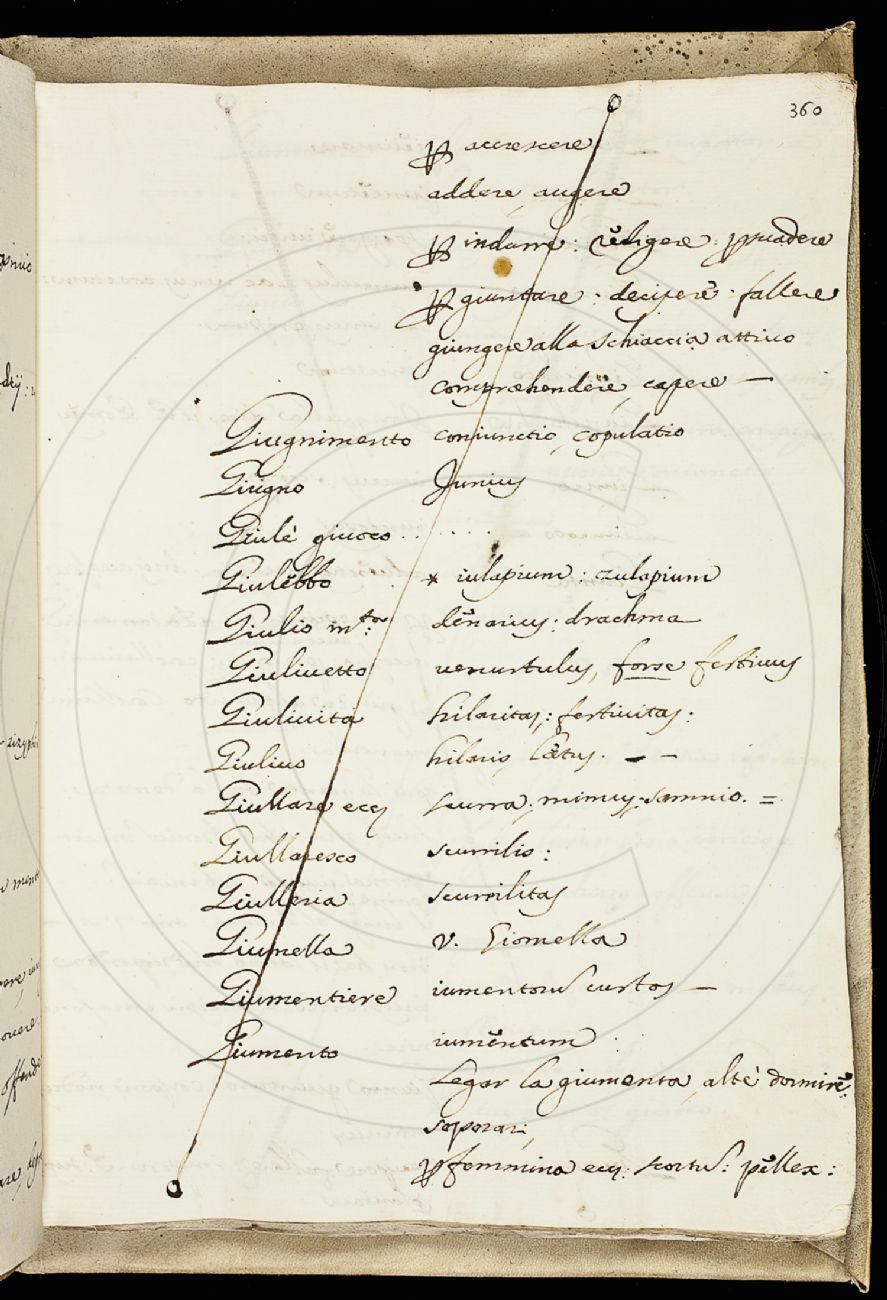 360
ꝑ accrescere
addere, augere
ꝑ indurre: redigere: ꝑsuadere
ꝑ giuntare: decipere: fallere
giungere alla schiaccia attivo
compræhendere, capere —
Giugnimento coniunctio, copulatio
Giugno Junius
Giulè giuoco . . . . . .
Giulebbo * iulapium: zulapium
Giulio denarius: drachma
Giulivetto venustulus, forse festivus
Giulività hilaritas: festivitas:
Giulivo hilaris lætus. — —
Giullare ecc scurra, mimus, sannio. =
Giullaresco scurrilis:
Giulleria scurrilitas
Giumella v. Giomella
Giumentiere iumentorum custos —
Giumento iumentum
Legar la giumenta, altè dormire:
soporari,
ꝑ femmina ecc: scortum: pellex: